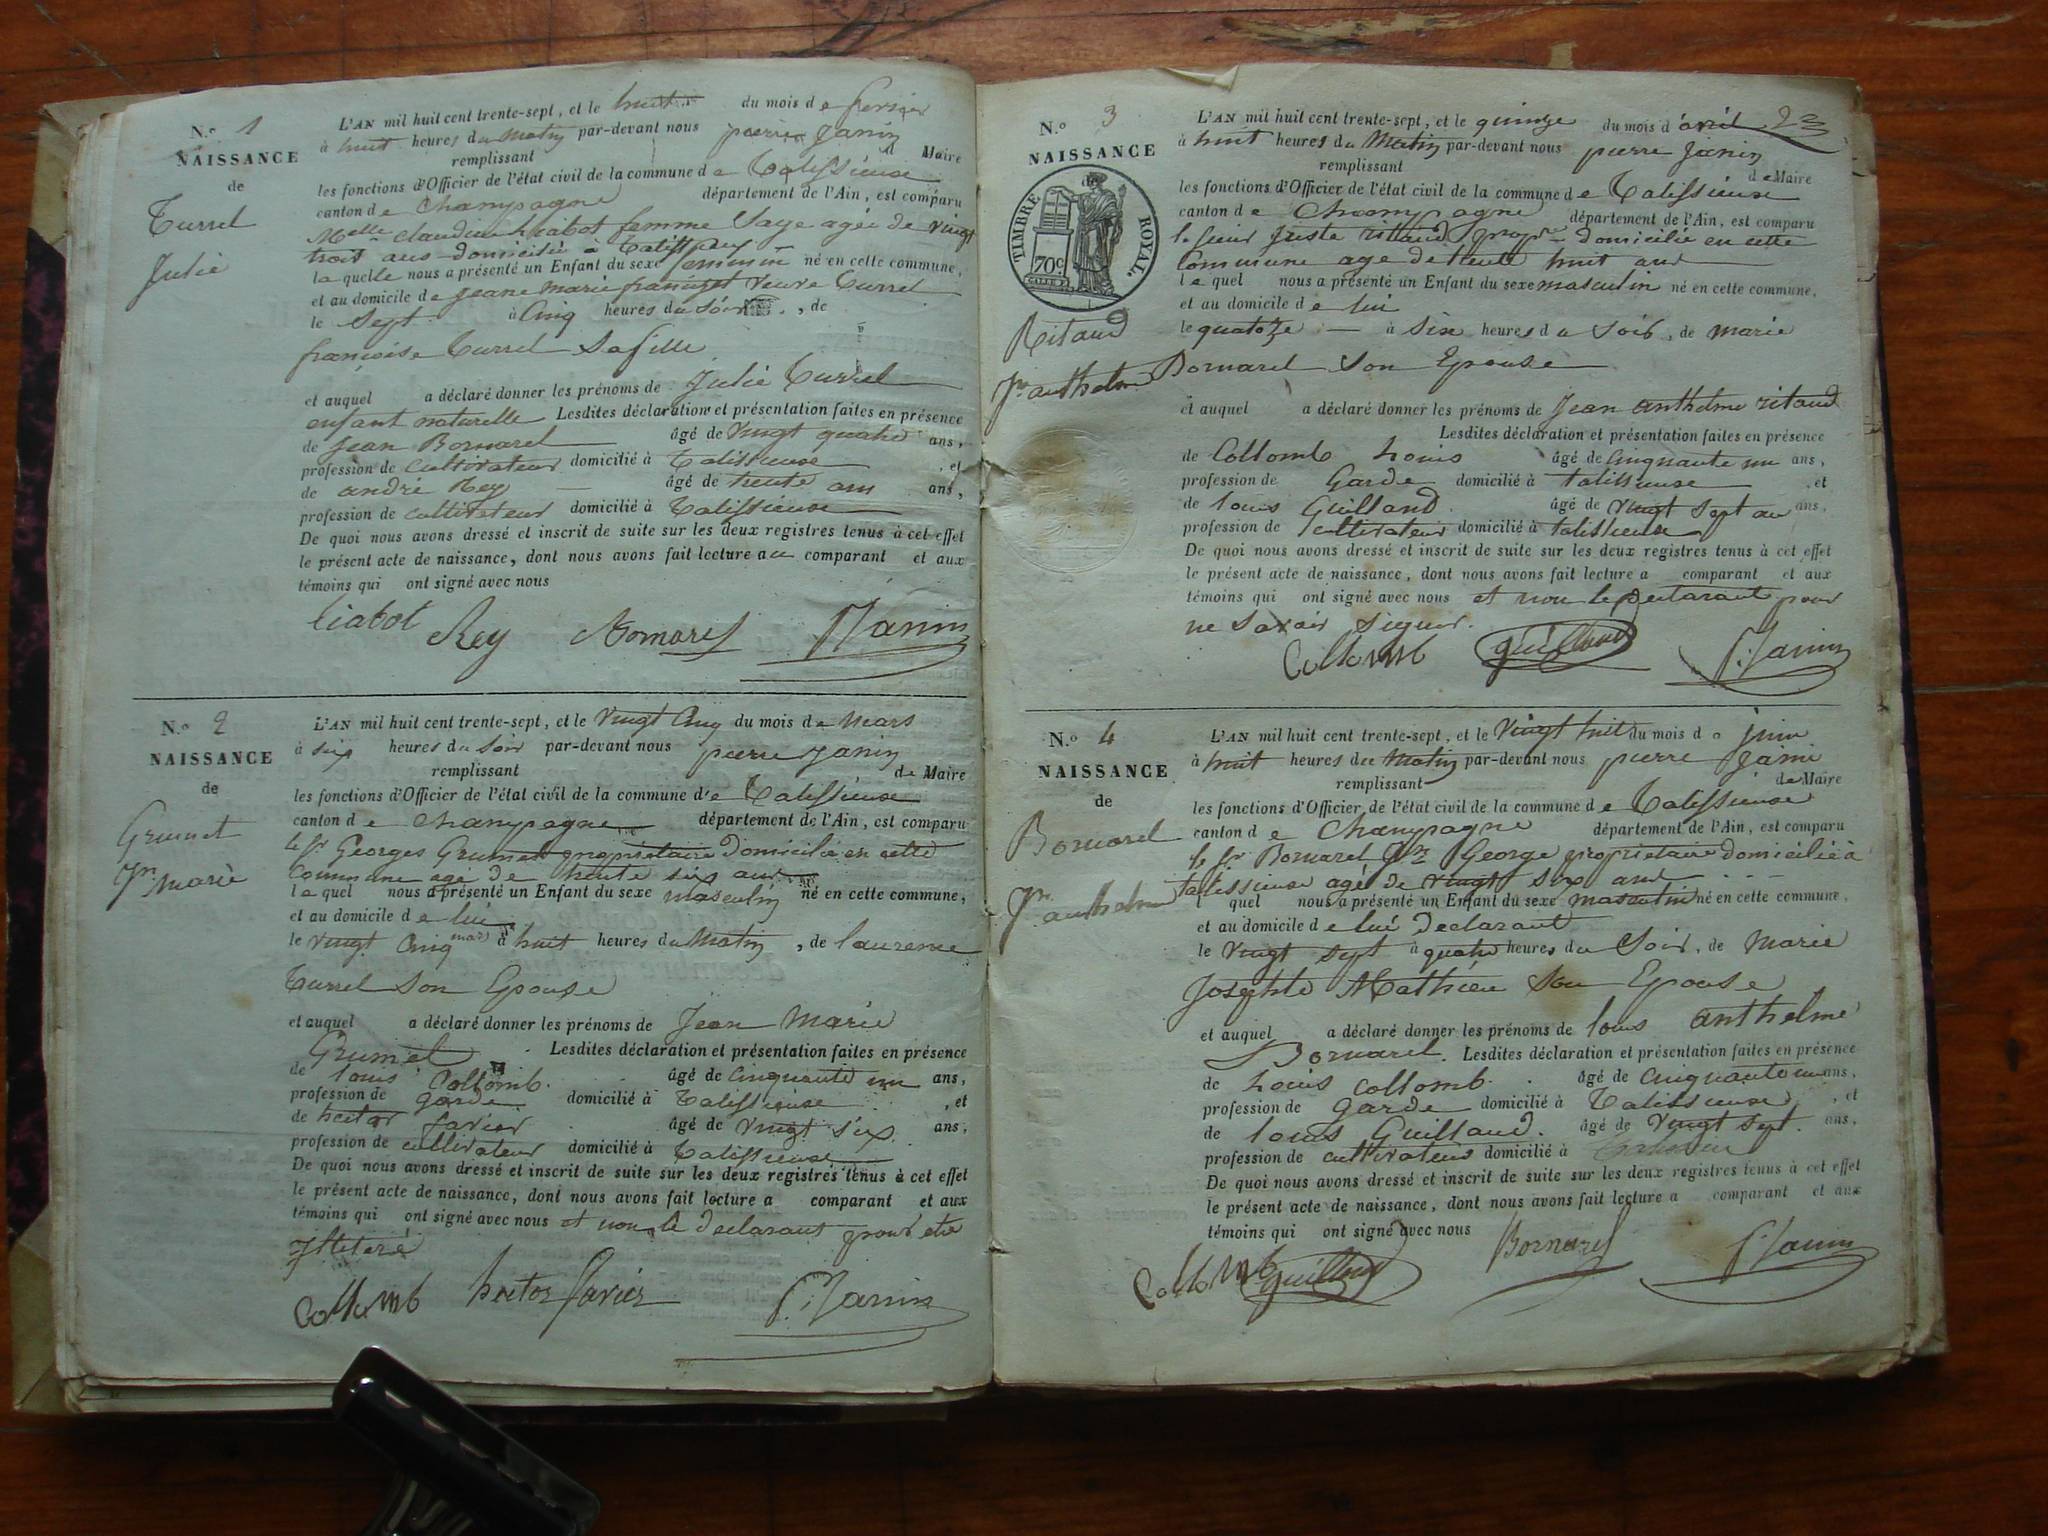 N.o 1
NAISSANCE
de
Turrel
Julie
L'AN mil huit cent trente-sept, et le huit du mois de fevrier
à huit heures du matin par-devant nous pierre Janin
remplissant d Maire
les fonctions d'Officier de l'état civil de la commune de Talissieuse
canton de Champagne département de l'Ain, est comparu
Melle claudine Liabot femme Sage agée de vingt
trois ans domiciliée à Talissieu
la quelle nous a présenté un Enfant du sexe feminin né en cette commune,
et au domicile de Jeane Marie veuve Turrel
le Sept à Cinq heures du Soir, de
françoise Turrel Sa fille
et auquel a déclaré donner les prénoms de Julie Turrel
enfant naturelle Lesdites déclaration et présentation faites en présence
de Jean Bornarel âgé de vingt quatre ans,
profession de cultivateur domicilié à Talissieuse, et
de andré Rey âgé de trente ans,
profession de cultivateur domicilié à Talissieuse
De quoi nous avons dressé et inscrit de suite sur les deux registres tenus à cet effet
le présent acte de naissance, dont nous avons fait lecture au comparant et aux
témoins qui ont signé avec nous
liabot Rey Bornarel P. Janin
N.o 2
NAISSANCE
de
Grumet
Jn Marie
L'AN mil huit cent trente-sept, et le vingt Cinq du mois de Mars
à six heures du Soir par-devant nous pierre Janin
remplissant de Maire
les fonctions d'Officier de l'état civil de la commune de Talissieuse
canton de Champagne département de l'Ain, est comparu
le Sr Georges Grumet propriétaire domicilié en cette
Commune agé de trente six ans
le quel nous a présenté un Enfant du sexe masculin né en cette commune,
et au domicile de lui
le vingt Cinq mars à huit heures du Matin, de laurence
Turrel Son Epouse
et auquel a déclaré donner les prénoms de Jean Marie
Grumet Lesdites déclaration et présentation faites en présence
de louis Collomb. âgé de Cinquante un ans,
profession de garde domicilié à Talissieuse, et
de hector favier âgé de vingt six ans,
profession de cultivateur domicilié à Talissieuse
De quoi nous avons dressé et inscrit de suite sur les deux registres tenus à cet effet
le présent acte de naissance, dont nous avons fait lecture a comparant et aux
témoins qui ont signé avec nous et non le declarant pour etre
Illeteré
Collomb hector favier P. Janin
N.o 3
NAISSANCE
TIMBRE ROYAL.
70c
Ritaud
Jn anthelme
L'AN mil huit cent trente-sept, et le quinze du mois d'avril
à huit heures du Matin par-devant nous pierre Janin
remplissant de Maire
les fonctions d'Officier de l'état civil de la commune de Talissieuse
canton de Champagne département de l'Ain, est comparu
le sieur Juste ritaud propre domicilié en cette
Commune age de trente huit ans
le quel nous a présenté un Enfant du sexe masculin né en cette commune,
et au domicile de lui
le quatoze à six heures du Soir, de marie
Bornarel Son Epouse
et auquel a déclaré donner les prénoms de Jean anthelme ritaud
Lesdites déclaration et présentation faites en présence
de Collomb Louis âgé de Cinquante un ans,
profession de Garde domicilié à talissieuse, et
de louis Guilland. âgé de vingt Sept an ans,
profession de Cultivateur domicilié à talissieuse
De quoi nous avons dressé et inscrit de suite sur les deux registres tenus à cet effet
le présent acte de naissance, dont nous avons fait lecture a comparant et aux
témoins qui ont signé avec nous et non le declarant pour
ne Savoir Signer.
Collomb guilland P. Janin
N.o 4
NAISSANCE
de
Bornarel
Jn anthelme
L'AN mil huit cent trente-sept, et le vingt huit du mois d juin
à huit heures du Matin par-devant nous pierre Janin
remplissant de Maire
les fonctions d'Officier de l'état civil de la commune de Talissieuse
canton de Champagne département de l'Ain, est comparu
le Sr Bornarel George propriétaire domicilié à
talissieuse agé de vingt six ans
l quel nous a présenté un Enfant du sexe masculin né en cette commune,
et au domicile de lui declarant
le vingt sept à quatre heures du Soir, de Marie
Josephte Mathieu Son Epouse
et auquel a déclaré donner les prénoms de louis anthelme
Bornarel. Lesdites déclaration et présentation faites en présence
de Louis collomb. âgé de Cinquante un ans,
profession de garde domicilié à Talissieuse, et
de louis Guilland. âgé de vingt sept. ans,
profession de cultivateur domicilié à
De quoi nous avons dressé et inscrit de suite sur les deux registres tenus à cet effet
le présent acte de naissance, dont nous avons fait lecture a comparant et aux
témoins qui ont signé avec nous
Collomb guilland Bornarel P. Janin